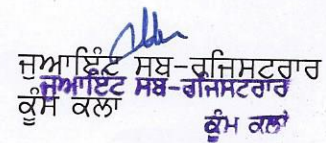 ਜੁਆਇੰਟ ਸਬ-ਰਜਿਸਟਰਾਰ
ਜੁਆਇੰਟ ਸਬ-ਰਜਿਸਟਰਾਰ
ਕੂੰਮ ਕਲਾਂ
ਕੂੰਮ ਕਲਾਂ